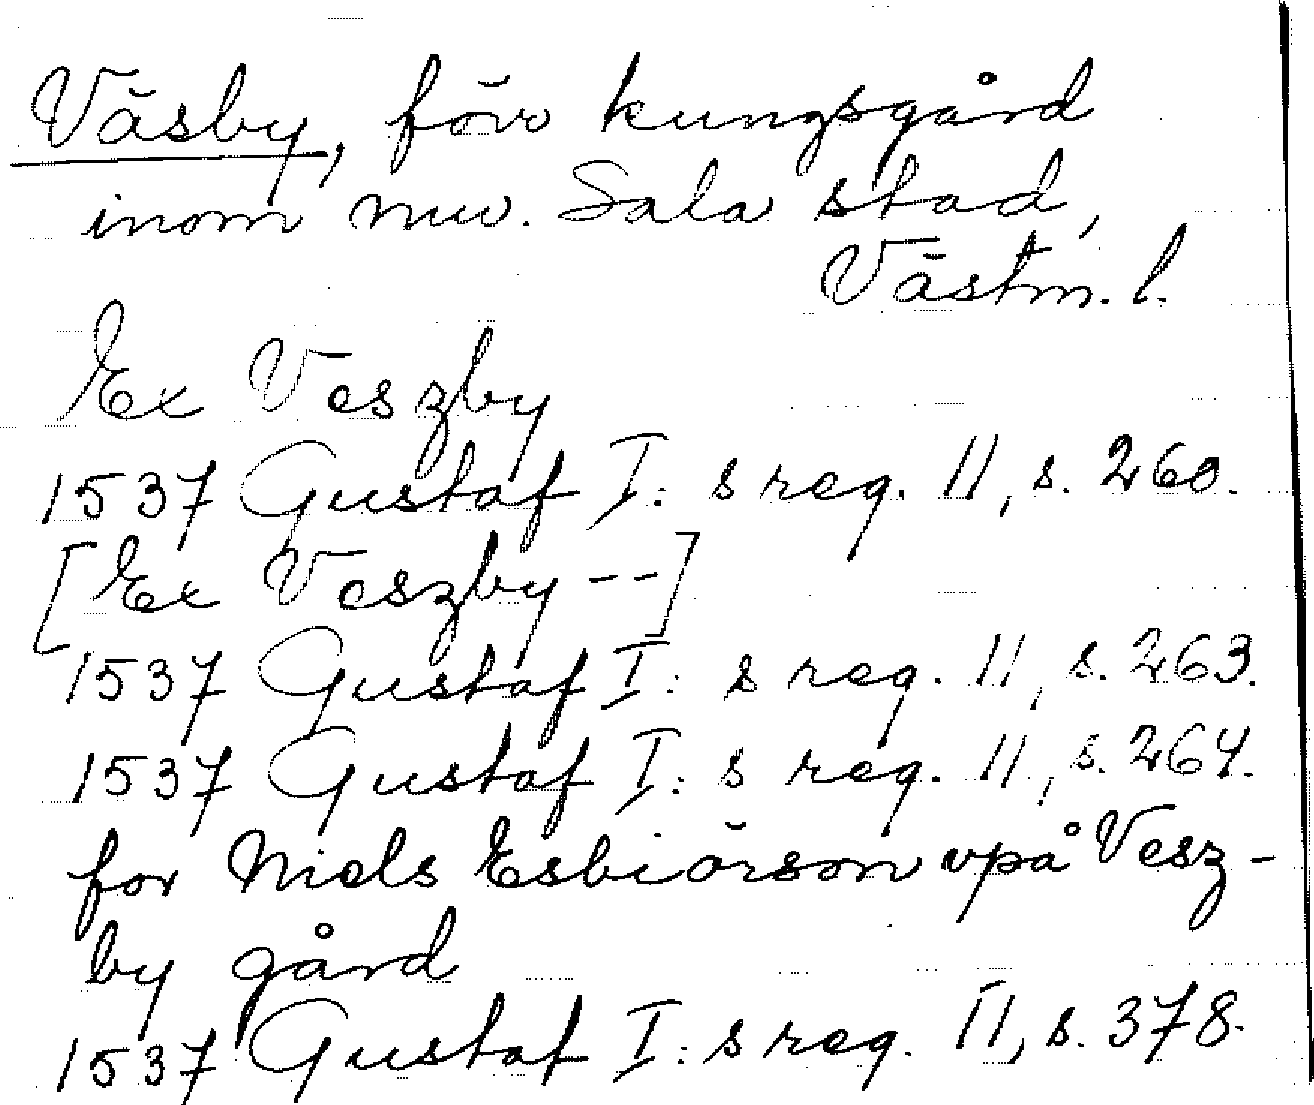 Väsby, förr kungsgård
inom nuv. Sala stad,
Västm. l.
Ex Veszby
1537 Gustaf I: s reg. 11, s. 260.
[Ex Veszby --]
1537 Gustaf I: s reg. 11, s. 263.
1537 Gustaf I: s reg. 11, s. 264.
for Niels Esbiörson vpå Vesz-
by gård
1537 Gustaf I: s reg. 11, s. 378.